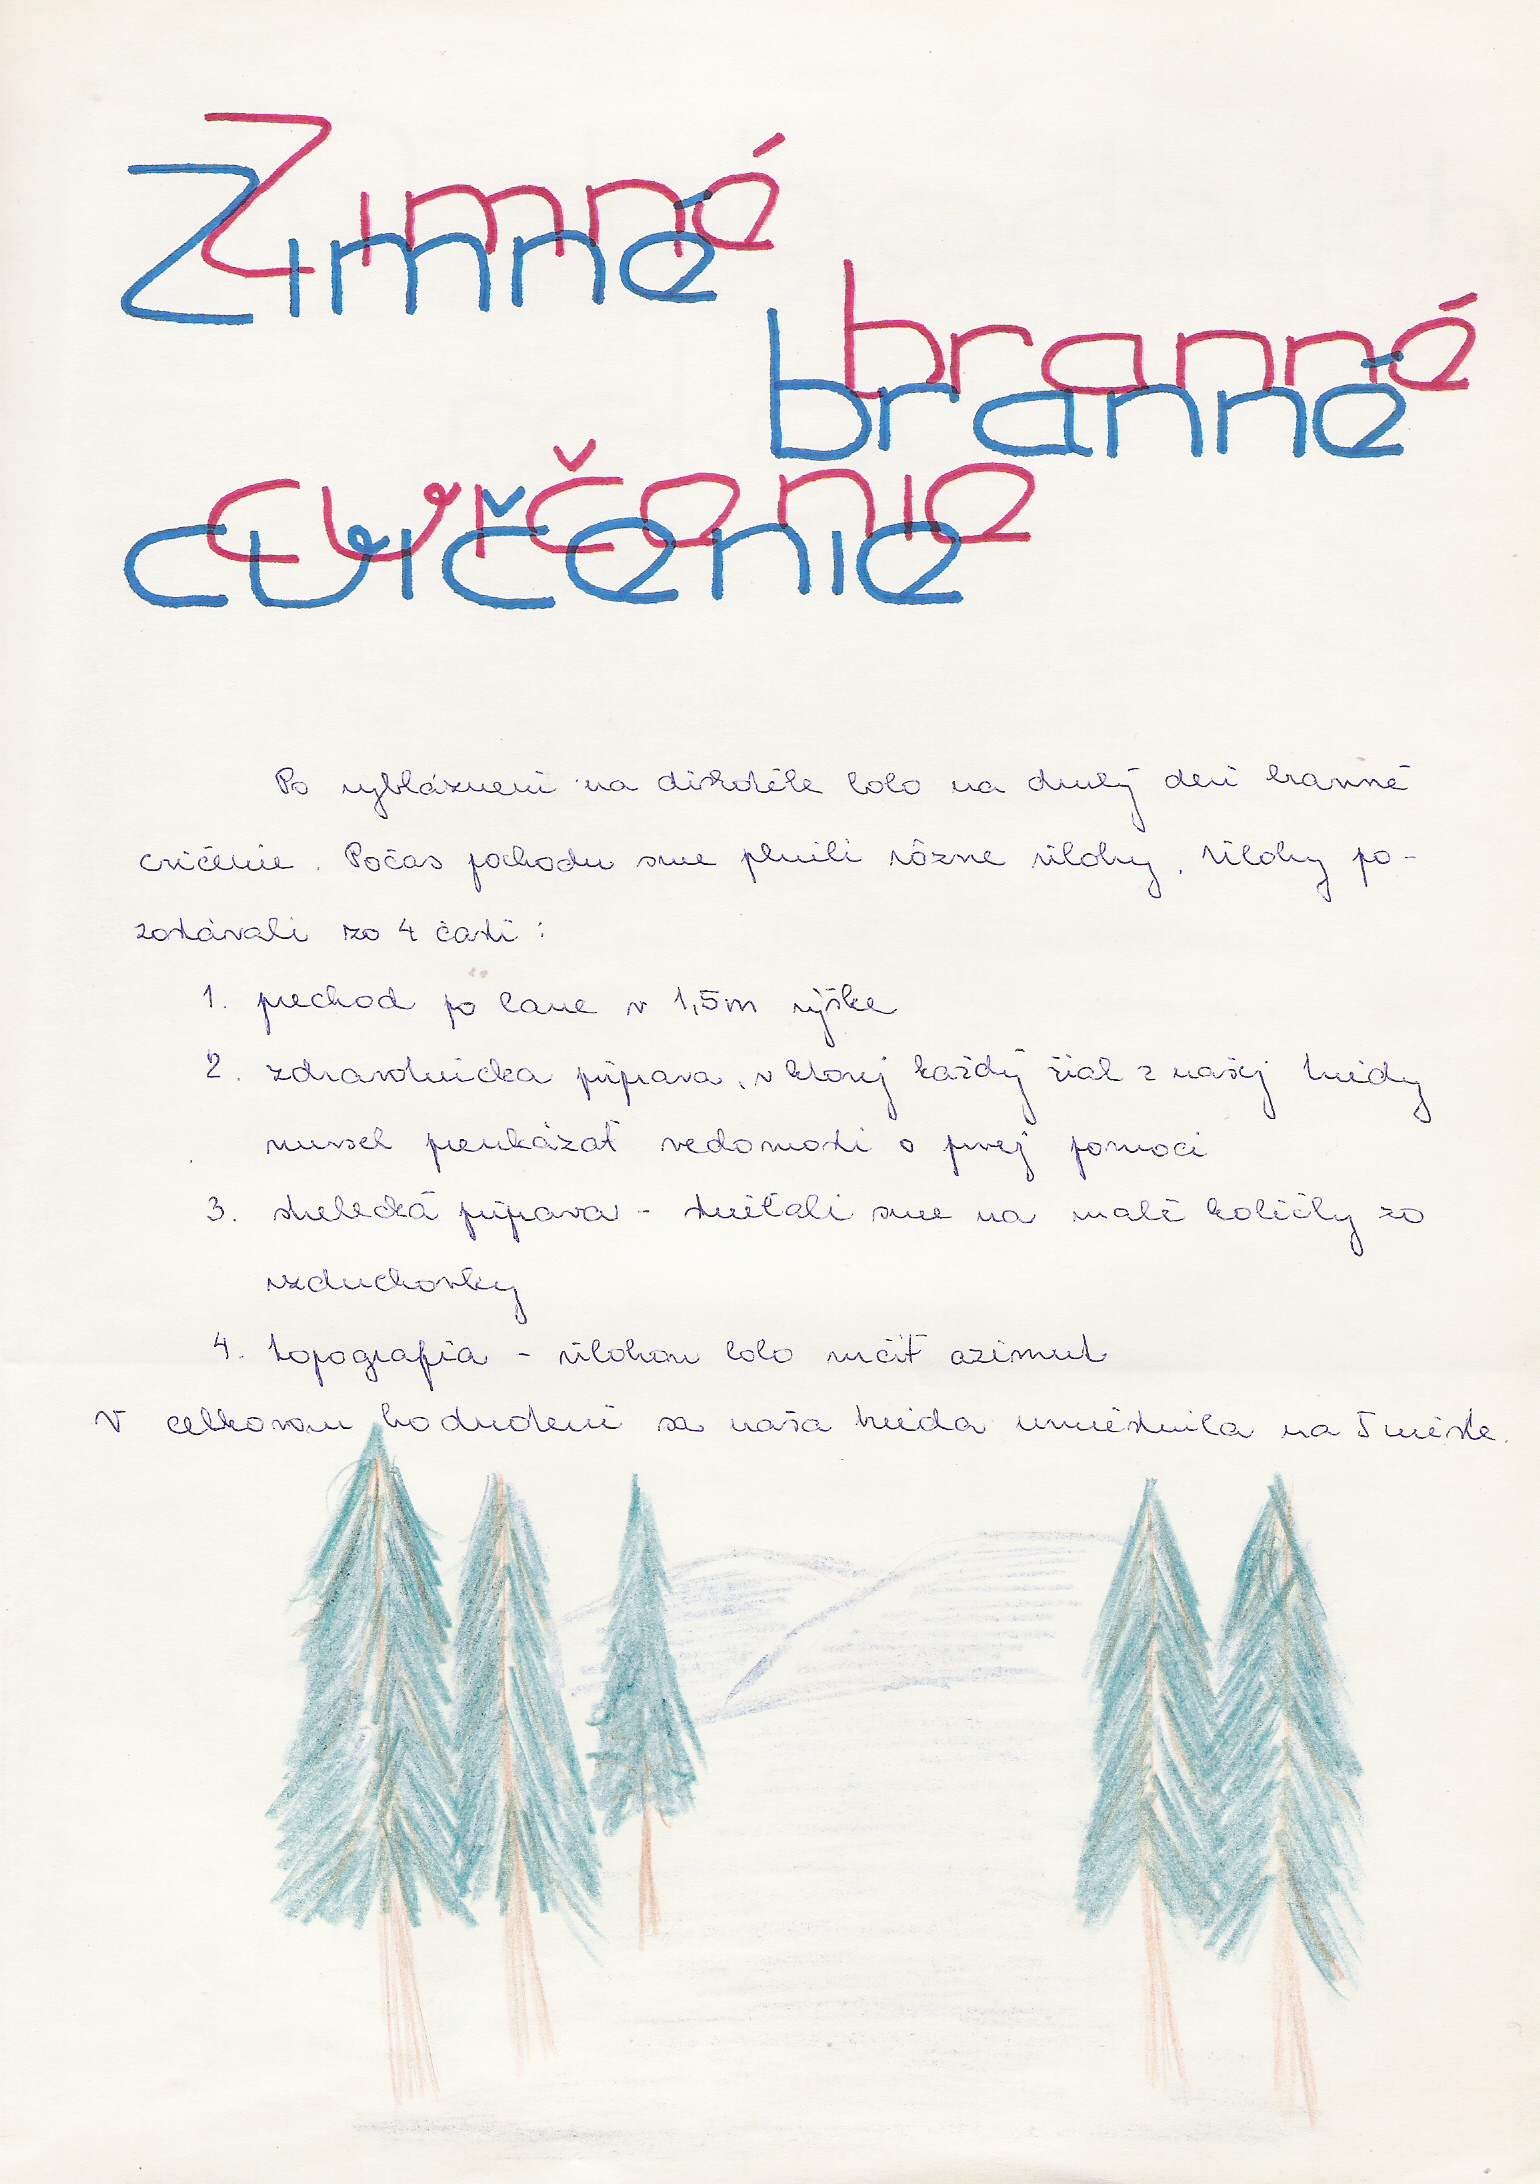 Zimné
branné
cvičenie
Po vybláznení na diskotéke bolo na druhý deň branné
cvičenie. Počas pochodu sme plnili rôzne úlohy. Úlohy po-
zostávali zo 4 častí:
1. prechod po lane v 1,5m výške
2. zdravotnícka príprava, v ktorej každý žiak z našej triedy
musel preukázať vedomosti o prvej pomoci
3. strelecká príprava - strieľali sme na malé kolíčky zo
vzduchovky
4. topografia - úlohou bolo určiť azimut
V celkovom hodnotení sa naša trieda umiestnila na 5 mieste.